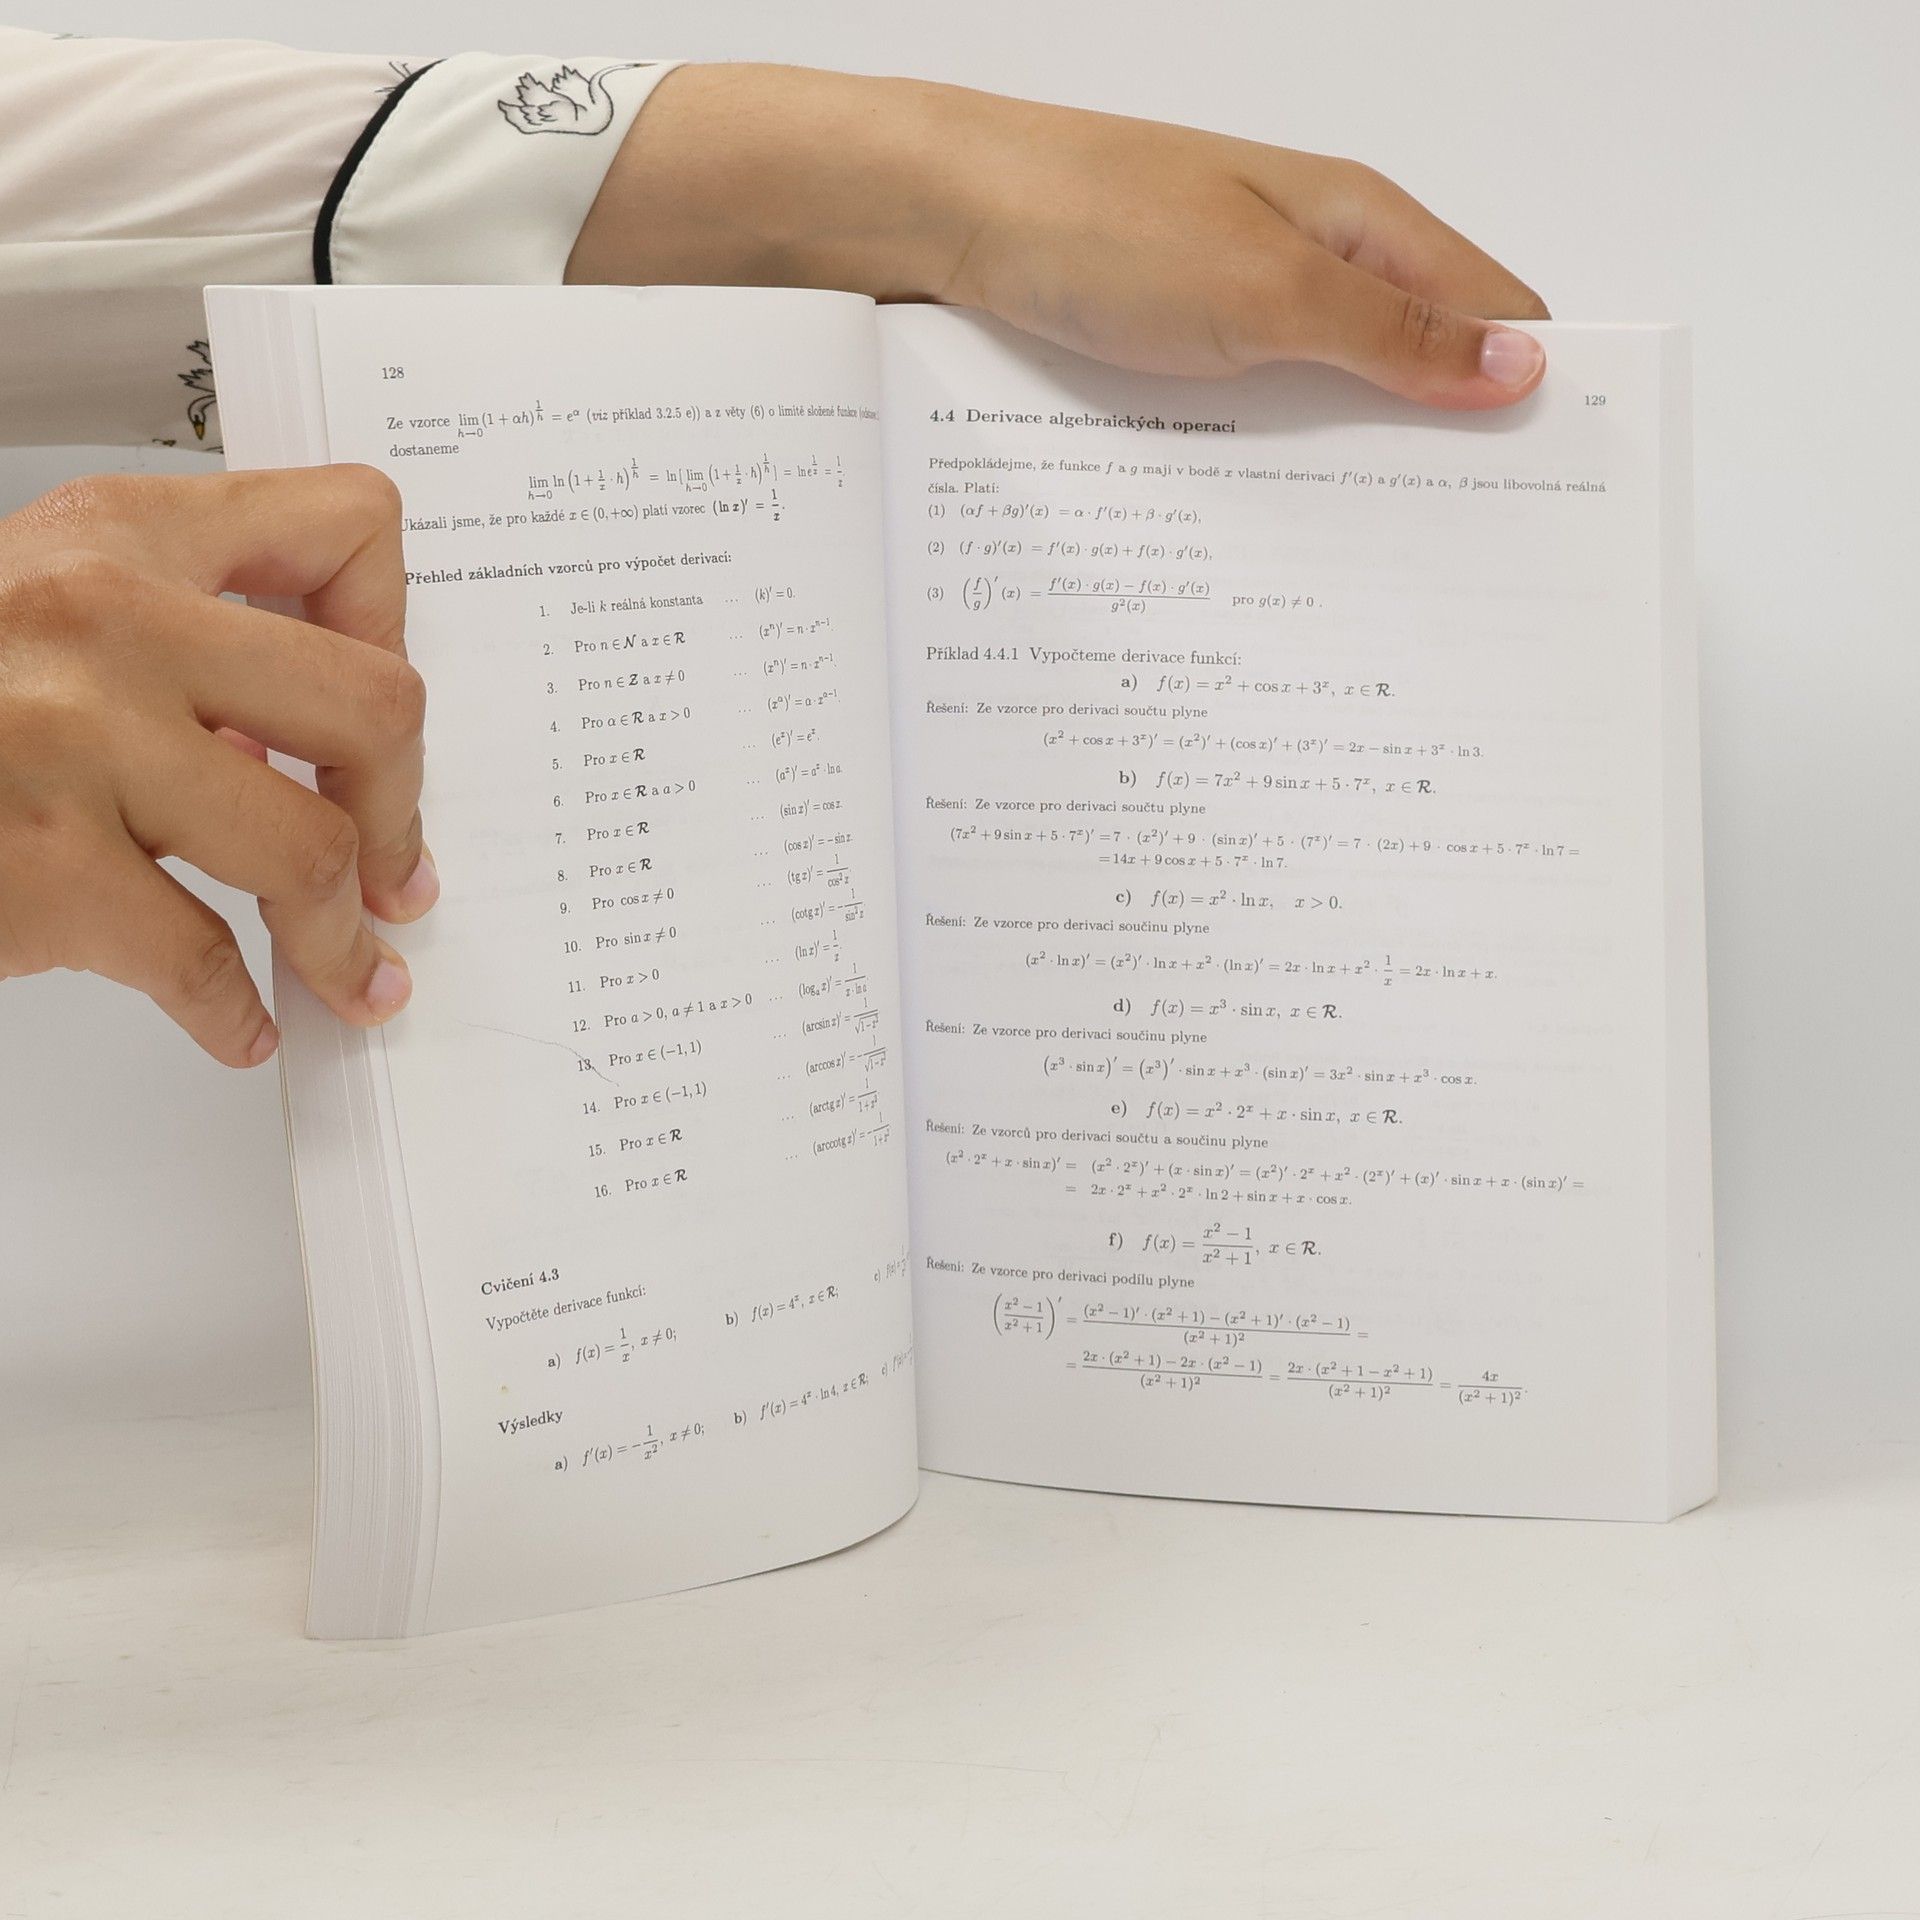 128
Ze vzorce lim_{h→0} (1 + αh)^{1/h} = e^α (viz příklad 3.2.5 e)) a z věty (6) o limitě složené funkce
dostaneme
lim_{h→0} ln (1 + 1/x · h)^{1/h} = ln[ lim_{h→0} (1 + 1/x · h)^{1/h} ] = ln e^{1/x} = 1/x.
Ukázali jsme, že pro každé x ∈ (0, +∞) platí vzorec (ln x)′ = 1/x.
Přehled základních vzorců pro výpočet derivací:
1. Je-li k reálná konstanta ... (k)′ = 0.
2. Pro n ∈ N a x ∈ R ... (x^n)′ = n · x^{n−1}.
3. Pro n ∈ Z a x ≠ 0 ... (x^n)′ = n · x^{n−1}.
4. Pro α ∈ R a x > 0 ... (x^α)′ = α · x^{α−1}.
5. Pro x ∈ R ... (e^x)′ = e^x.
6. Pro x ∈ R a a > 0 ... (a^x)′ = a^x · ln a.
7. Pro x ∈ R ... (sin x)′ = cos x.
8. Pro x ∈ R ... (cos x)′ = − sin x.
9. Pro cos x ≠ 0 ... (tg x)′ = 1/cos² x.
10. Pro sin x ≠ 0 ... (cotg x)′ = −1/sin² x.
11. Pro x > 0 ... (ln x)′ = 1/x.
12. Pro a > 0, a ≠ 1 a x > 0 ... (log_a x)′ = 1/(x · ln a)
13. Pro x ∈ (−1, 1) ... (arcsin x)′ = 1/√(1−x²)
14. Pro x ∈ (−1, 1) ... (arccos x)′ = −1/√(1−x²)
15. Pro x ∈ R ... (arctg x)′ = 1/(1+x²)
16. Pro x ∈ R ... (arccotg x)′ = −1/(1+x²)
Cvičení 4.3
Vypočtěte derivace funkcí:
a) f(x) = 1/x, x ≠ 0; b) f(x) = 4^x, x ∈ R; c)
Výsledky
a) f′(x) = −1/x², x ≠ 0; b) f′(x) = 4^x · ln 4, x ∈ R; c)
129
4.4 Derivace algebraických operací
Předpokládejme, že funkce f a g mají v bodě x vlastní derivaci f′(x) a g′(x) a α, β jsou libovolná reálná
čísla. Platí:
(1) (αf + βg)′(x) = α · f′(x) + β · g′(x),
(2) (f · g)′(x) = f′(x) · g(x) + f(x) · g′(x),
(3) (f/g)′ (x) = (f′(x) · g(x) − f(x) · g′(x))/g²(x) pro g(x) ≠ 0 .
Příklad 4.4.1 Vypočteme derivace funkcí:
a) f(x) = x² + cos x + 3^x, x ∈ R.
Řešení: Ze vzorce pro derivaci součtu plyne
(x² + cos x + 3^x)′ = (x²)′ + (cos x)′ + (3^x)′ = 2x − sin x + 3^x · ln 3.
b) f(x) = 7x² + 9 sin x + 5 · 7^x, x ∈ R.
Řešení: Ze vzorce pro derivaci součtu plyne
(7x² + 9 sin x + 5 · 7^x)′ = 7 · (x²)′ + 9 · (sin x)′ + 5 · (7^x)′ = 7 · (2x) + 9 · cos x + 5 · 7^x · ln 7 =
= 14x + 9 cos x + 5 · 7^x · ln 7.
c) f(x) = x² · ln x, x > 0.
Řešení: Ze vzorce pro derivaci součinu plyne
(x² · ln x)′ = (x²)′ · ln x + x² · (ln x)′ = 2x · ln x + x² · 1/x = 2x · ln x + x.
d) f(x) = x³ · sin x, x ∈ R.
Řešení: Ze vzorce pro derivaci součinu plyne
(x³ · sin x)′ = (x³)′ · sin x + x³ · (sin x)′ = 3x² · sin x + x³ · cos x.
e) f(x) = x² · 2^x + x · sin x, x ∈ R.
Řešení: Ze vzorců pro derivaci součtu a součinu plyne
(x² · 2^x + x · sin x)′ = (x² · 2^x)′ + (x · sin x)′ = (x²)′ · 2^x + x² · (2^x)′ + (x)′ · sin x + x · (sin x)′ =
= 2x · 2^x + x² · 2^x · ln 2 + sin x + x · cos x.
f) f(x) = (x² − 1)/(x² + 1), x ∈ R.
Řešení: Ze vzorce pro derivaci podílu plyne
((x² − 1)/(x² + 1))′ = ((x² − 1)′ · (x² + 1) − (x² + 1)′ · (x² − 1))/(x² + 1)² =
= (2x · (x² + 1) − 2x · (x² − 1))/(x² + 1)² = (2x · (x² + 1 − x² + 1))/(x² + 1)² = 4x/(x² + 1)².